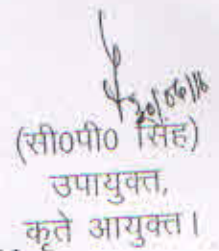 30/06/18
(सी०पी० सिंह)
उपायुक्त,
कृते आयुक्त।